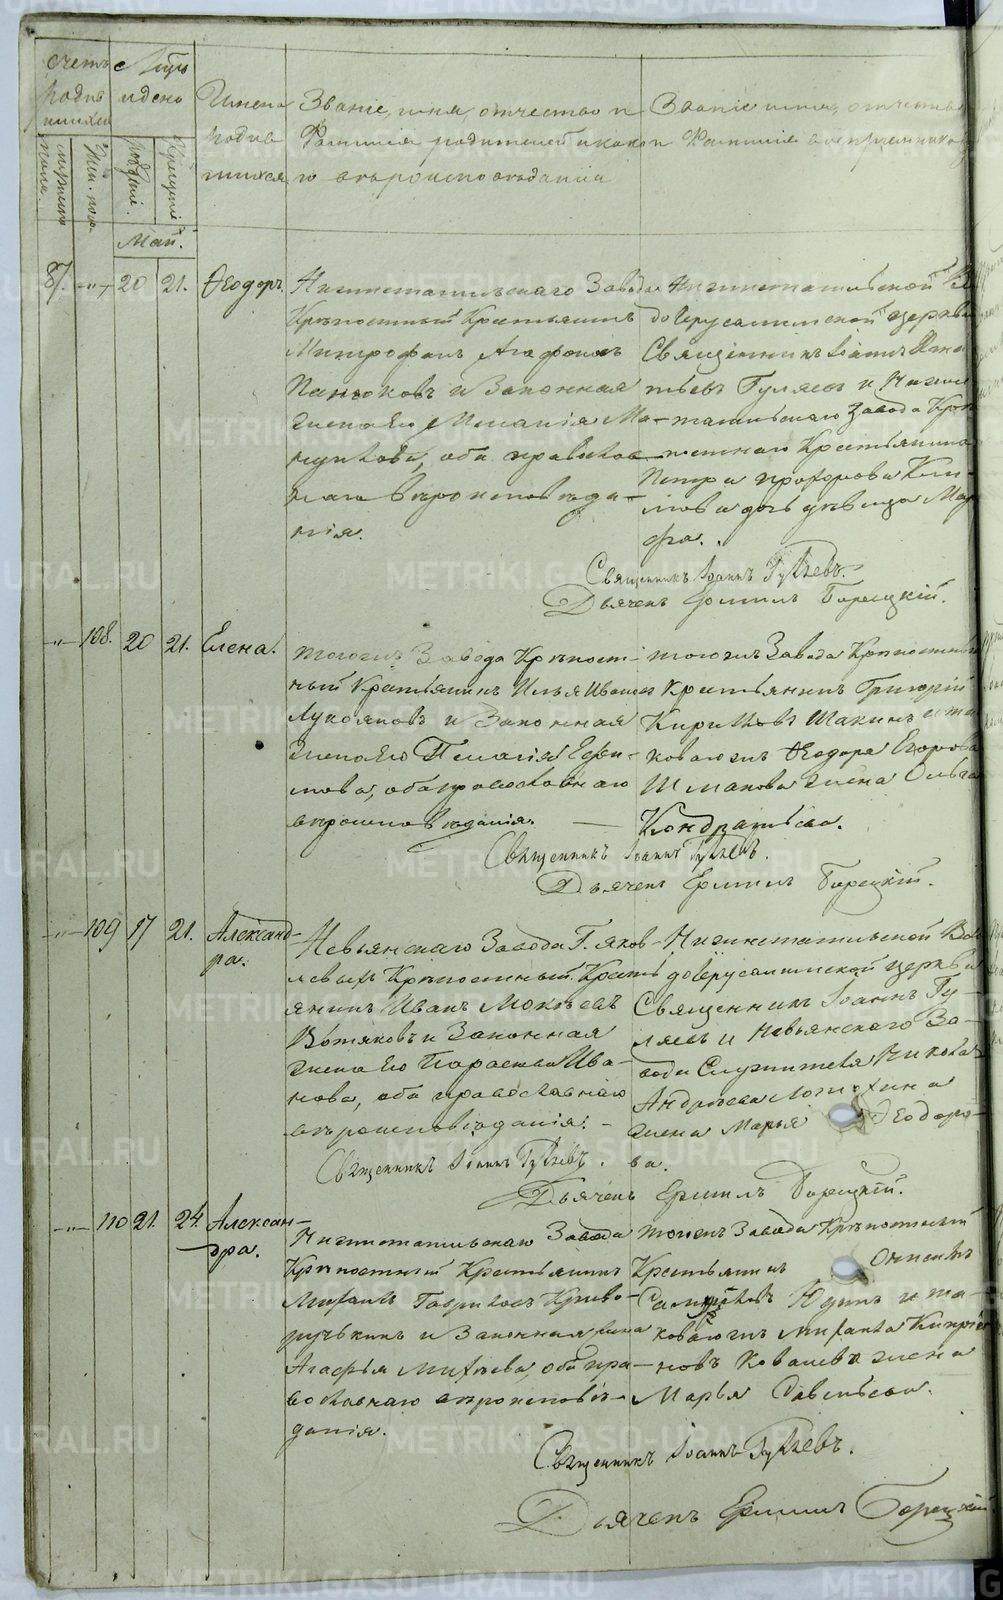 Счетъ родив шихся
Мѣсяцъ и день
Имена родив шихся
Званіе, имя, отчество и Фамилія родителей и какого вѣроисповѣданія
Званіе имя, отчество и Фамилія воспріемниковъ
мужеск пола.
Жен. пола
рожденіе.
Крещеніе
Май.
87. -"- 20 21. Ѳеодоръ.
Нижнетагильскаго Завода
Крѣпостный Крестьянинъ
Митрофанъ Агафоновъ
Панюковъ и Законная
жена его Меланія Ма-
, оба православ
наго Вѣроисповѣда-
нія.
Нижнетагильской Вхо
доіерусалимской церкви
Священникъ Іоаннъ Игна
тьевъ Гуляевъ и Нижне
тагильскаго Завода Крѣ
постнаго Крестьянина
Петра Прохорова Кли-
мова дочь дѣвица Мар
фа.
Священникъ Іоаннъ Гуляевъ.
Дьячекъ Ермилъ Борецкій.
-"- 108. 20 21. Елена.
тогожъ Завода Крѣпост-
ный Крестьянинъ Илья Ивановъ
Лукояновъ и Законная
жена его Пелагія Ефи-
мова, оба православнаго
вѣроисповѣданія.
тогожъ Завода Крѣпостный
Крестьянинъ Григорій
Кириловъ Шакинъ и та
коваго жъ Ѳеодора Егорова
Шмакова жена Ольга
Кондратьева.
Священникъ Іоаннъ Гуляевъ.
Дьячекъ Ермилъ Борецкій.
-"- 109 17 21. Александ-
ра.
Невьянскаго Завода Г. Яков-
левыхъ Крѣпостный Кресть
янинъ Иванъ Мокѣевъ
Вотяковъ и Законная
жена его Параскева Ива-
нова, оба православнаго
вѣроисповѣданія.
Нижнетагильской Вхо
доіерусалимской церкви
Священникъ Іоаннъ Гу-
ляевъ и Невьянскаго За-
вода Служителя Никола
Андреева
жена Марья Ѳеодоро-
ва.
Священникъ Іоаннъ Гуляевъ.
Дьячекъ Ермилъ Борецкій.
-"- 110 21. 24. Алексан-
дра.
Нижнетагильскаго Завода
Крѣпостный Крестьянинъ
Михаилъ Гавриловъ Криво-
ручкинъ и Законная жена
Агафья Михѣева, оба пра-
вославнаго вѣроисповѣ-
данія.
тогожъ Завода Крѣпостный
Крестьянинъ Онисимъ
Юдинъ и та-
коваго жъ Михаила Кипріа
новъ Ковалева жена
Марья Савельева.
Священникъ Іоаннъ Гуляевъ.
Дьячекъ Ермилъ Борецкій
METRIKI.GASO-URAL.RU